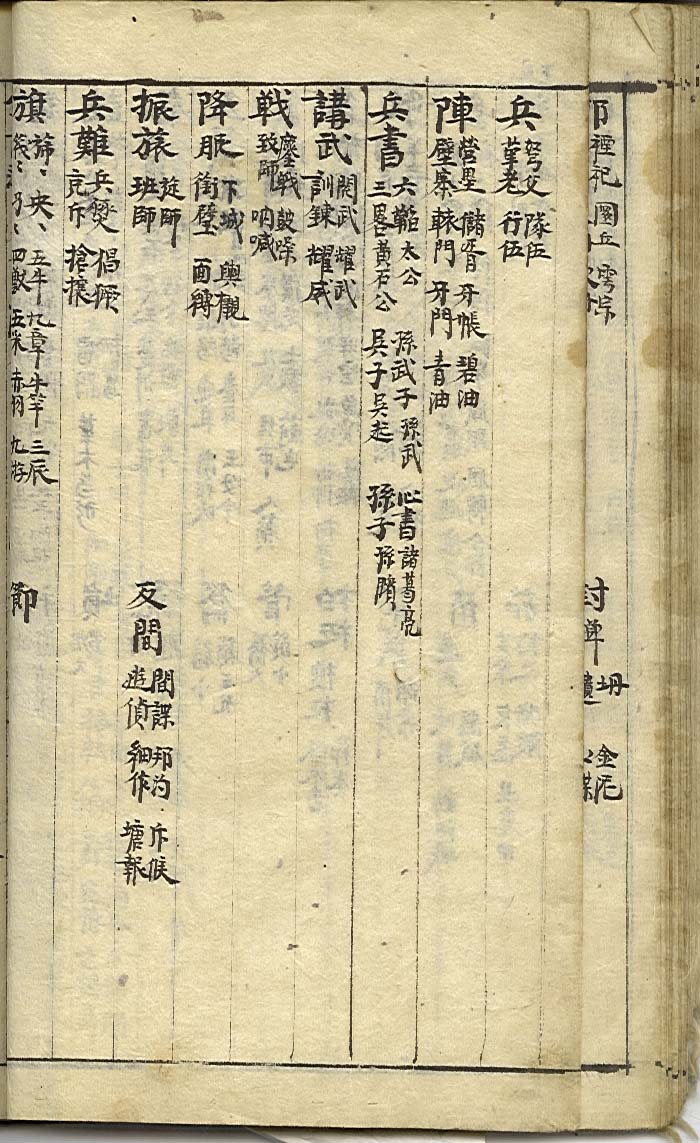 兵 弩父 隊伍 葦老 行伍
陣 營壘 儲胥 牙帳 碧油 壁寨 轅門 牙門 青油
兵書 六韜 太公 孫武子 孫武 心書 諸葛亮 三畧 黃石公 吳子 吳起 孫子 孫臏
講武 閱武 耀武 訓鍊 耀威
戰 鏖戰 鼓噪 致師 吶喊
降服 下城 輿櫬 銜璧 面縛
振旅 旋師 班師 反間 間諜 邦汋 斥候 遊偵 細作 塘報
兵難 兵燹 猖獗 充斥 搶攘
旗 旆 央 五牛 九章 牛竿 三辰 四獸 五采 赤羽 九斿 節
禋祀 圜丘 雩宗
封禪 坍 金泥